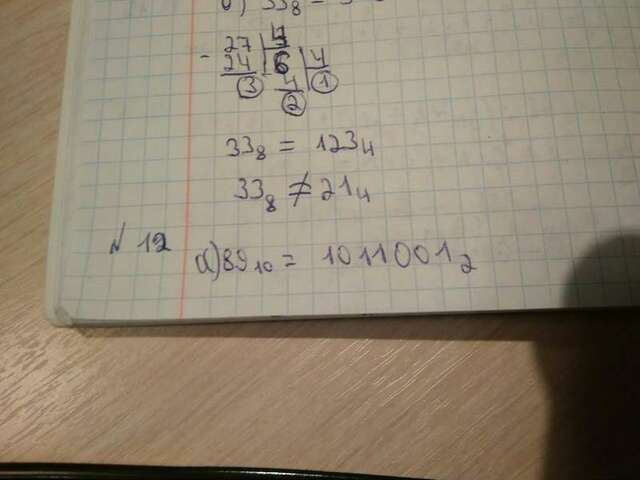 б) 33₈ =
- 27 | 4
24 | 6 | 4
3 4 1
2
33₈ = 123₄
33₈ ≠ 21₄
№ 12
а) 89₁₀ = 1011001₂